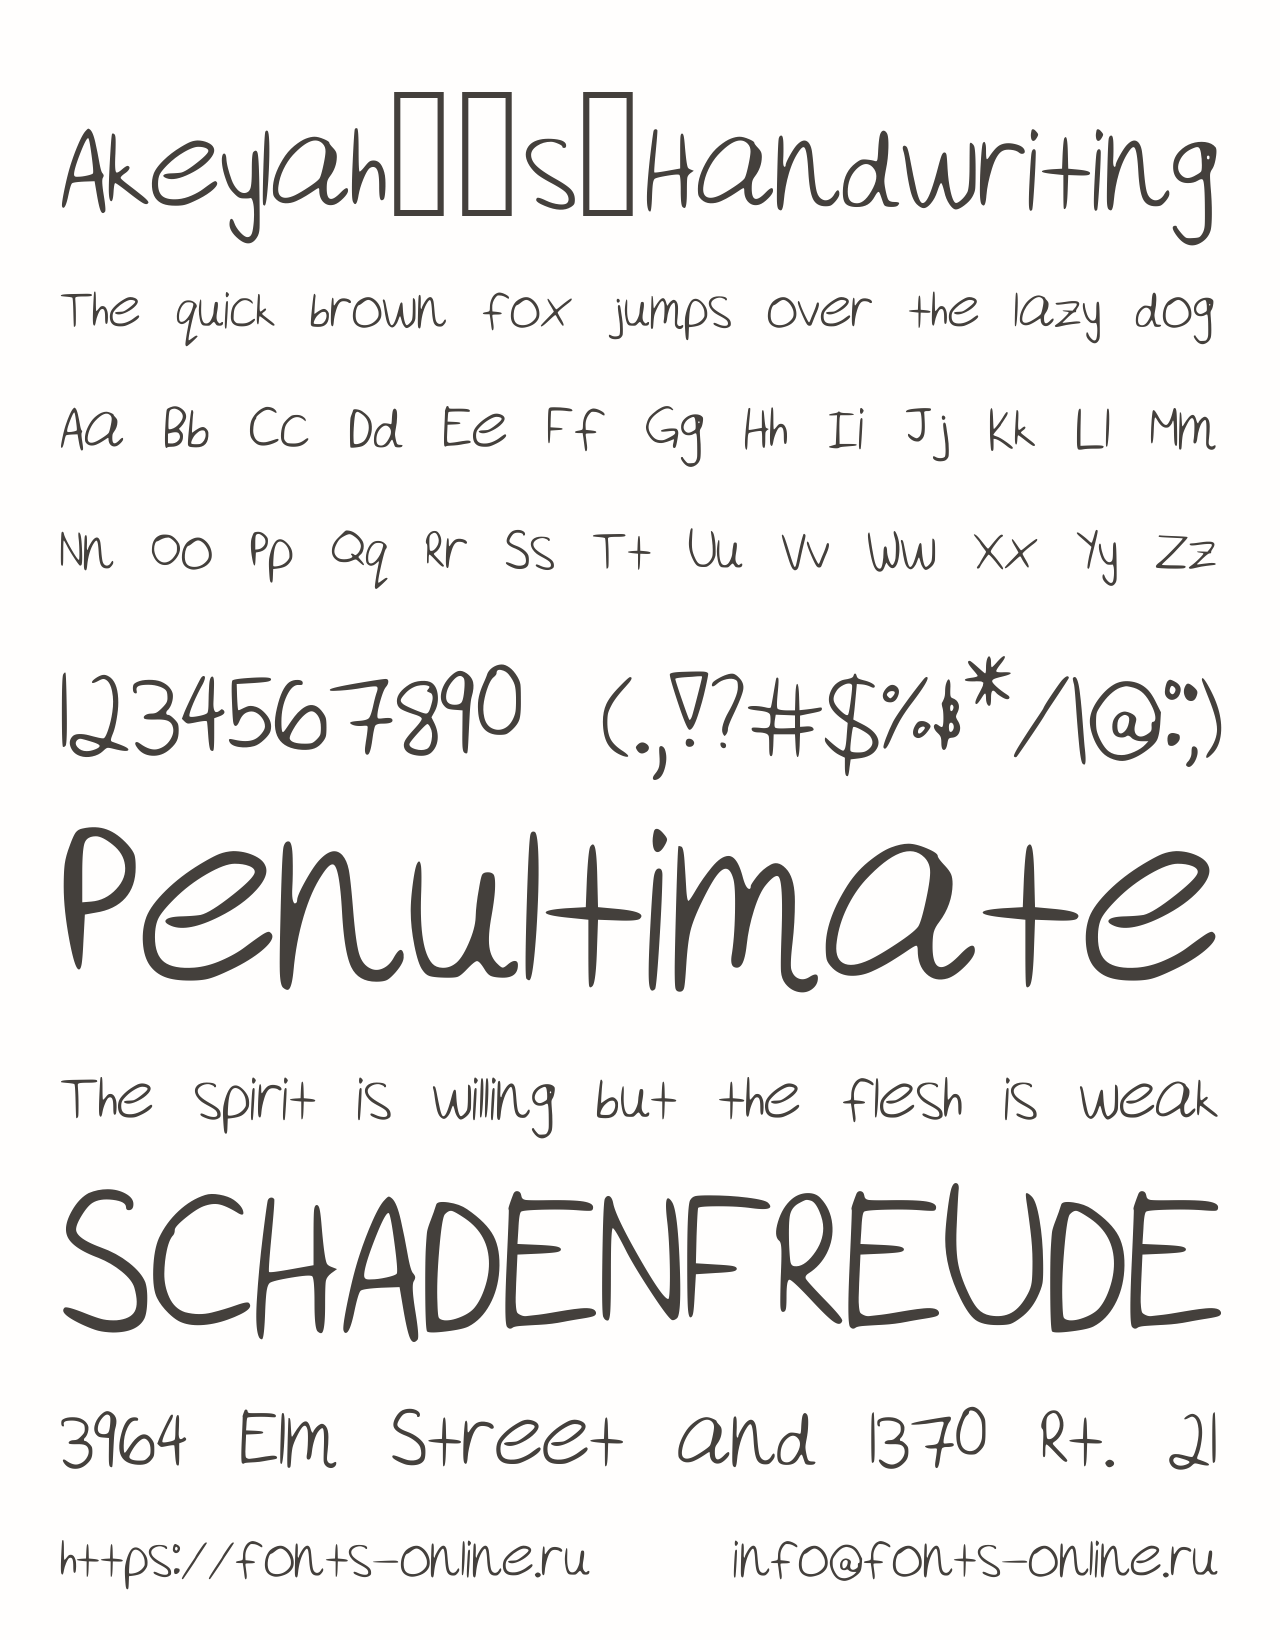 Akeylah▯▯s▯Handwriting
The quick brown fox jumps over the lazy dog
Aa Bb Cc Dd Ee Ff Gg Hh Ii Jj Kk Ll Mm
Nn Oo Pp Qq Rr Ss Tt Uu Vv Ww Xx Yy Zz
1234567890 (.,!?#$%&*/\@:;)
Penultimate
The spirit is willing but the flesh is weak
SCHADENFREUDE
3964 Elm Street and 1370 Rt. 21
https://fonts-online.ru info@fonts-online.ru